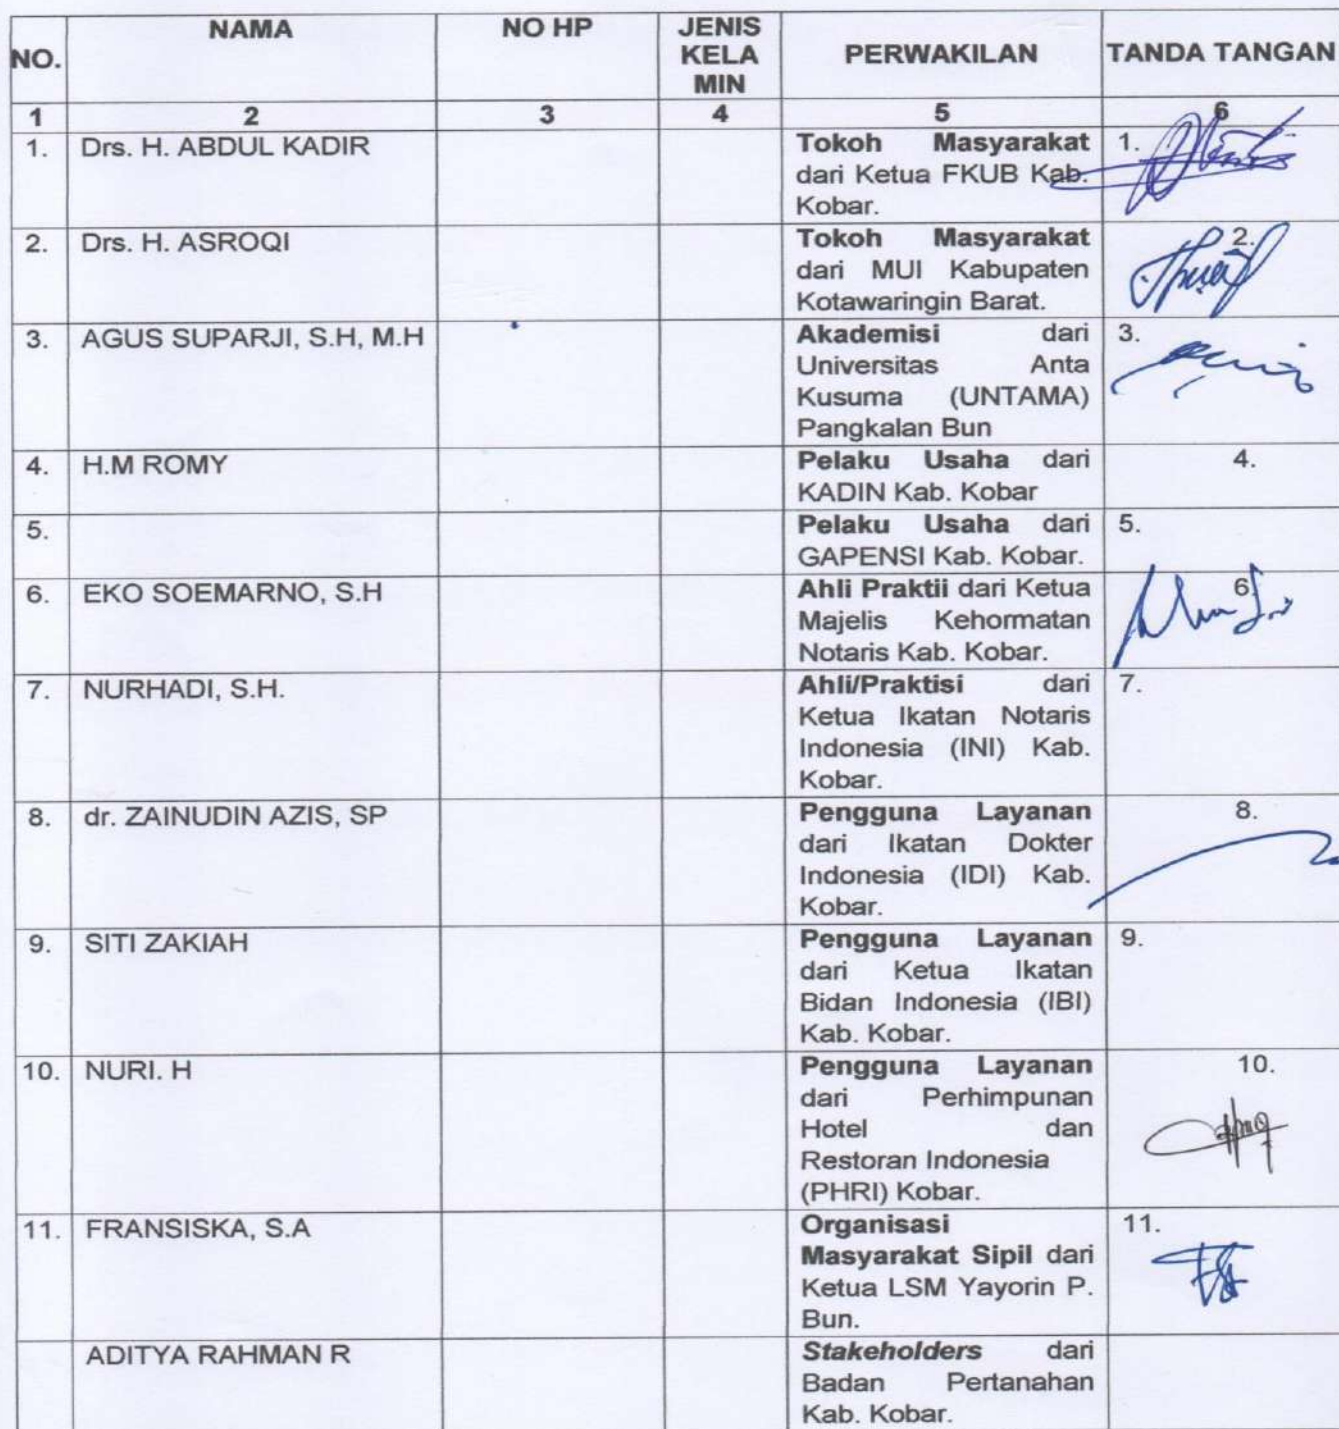 NO.
NAMA
NO HP
JENIS
KELA
MIN
PERWAKILAN
TANDA TANGAN
1 2 3 4 5 6
1. Drs. H. ABDUL KADIR
Tokoh Masyarakat
dari Ketua FKUB Kab.
Kobar.
1.
2. Drs. H. ASROQI
Tokoh Masyarakat
dari MUI Kabupaten
Kotawaringin Barat.
2.
3. AGUS SUPARJI, S.H, M.H
Akademisi dari
Universitas Anta
Kusuma (UNTAMA)
Pangkalan Bun
3.
4. H.M ROMY
Pelaku Usaha dari
KADIN Kab. Kobar
4.
5.
Pelaku Usaha dari
GAPENSI Kab. Kobar.
5.
6. EKO SOEMARNO, S.H
Ahli Praktii dari Ketua
Majelis Kehormatan
Notaris Kab. Kobar.
6.
7. NURHADI, S.H.
Ahli/Praktisi dari
Ketua Ikatan Notaris
Indonesia (INI) Kab.
Kobar.
7.
8. dr. ZAINUDIN AZIS, SP
Pengguna Layanan
dari Ikatan Dokter
Indonesia (IDI) Kab.
Kobar.
8.
9. SITI ZAKIAH
Pengguna Layanan
dari Ketua Ikatan
Bidan Indonesia (IBI)
Kab. Kobar.
9.
10. NURI. H
Pengguna Layanan
dari Perhimpunan
Hotel dan
Restoran Indonesia
(PHRI) Kobar.
10.
11. FRANSISKA, S.A
Organisasi
Masyarakat Sipil dari
Ketua LSM Yayorin P.
Bun.
11.
ADITYA RAHMAN R
Stakeholders dari
Badan Pertanahan
Kab. Kobar.